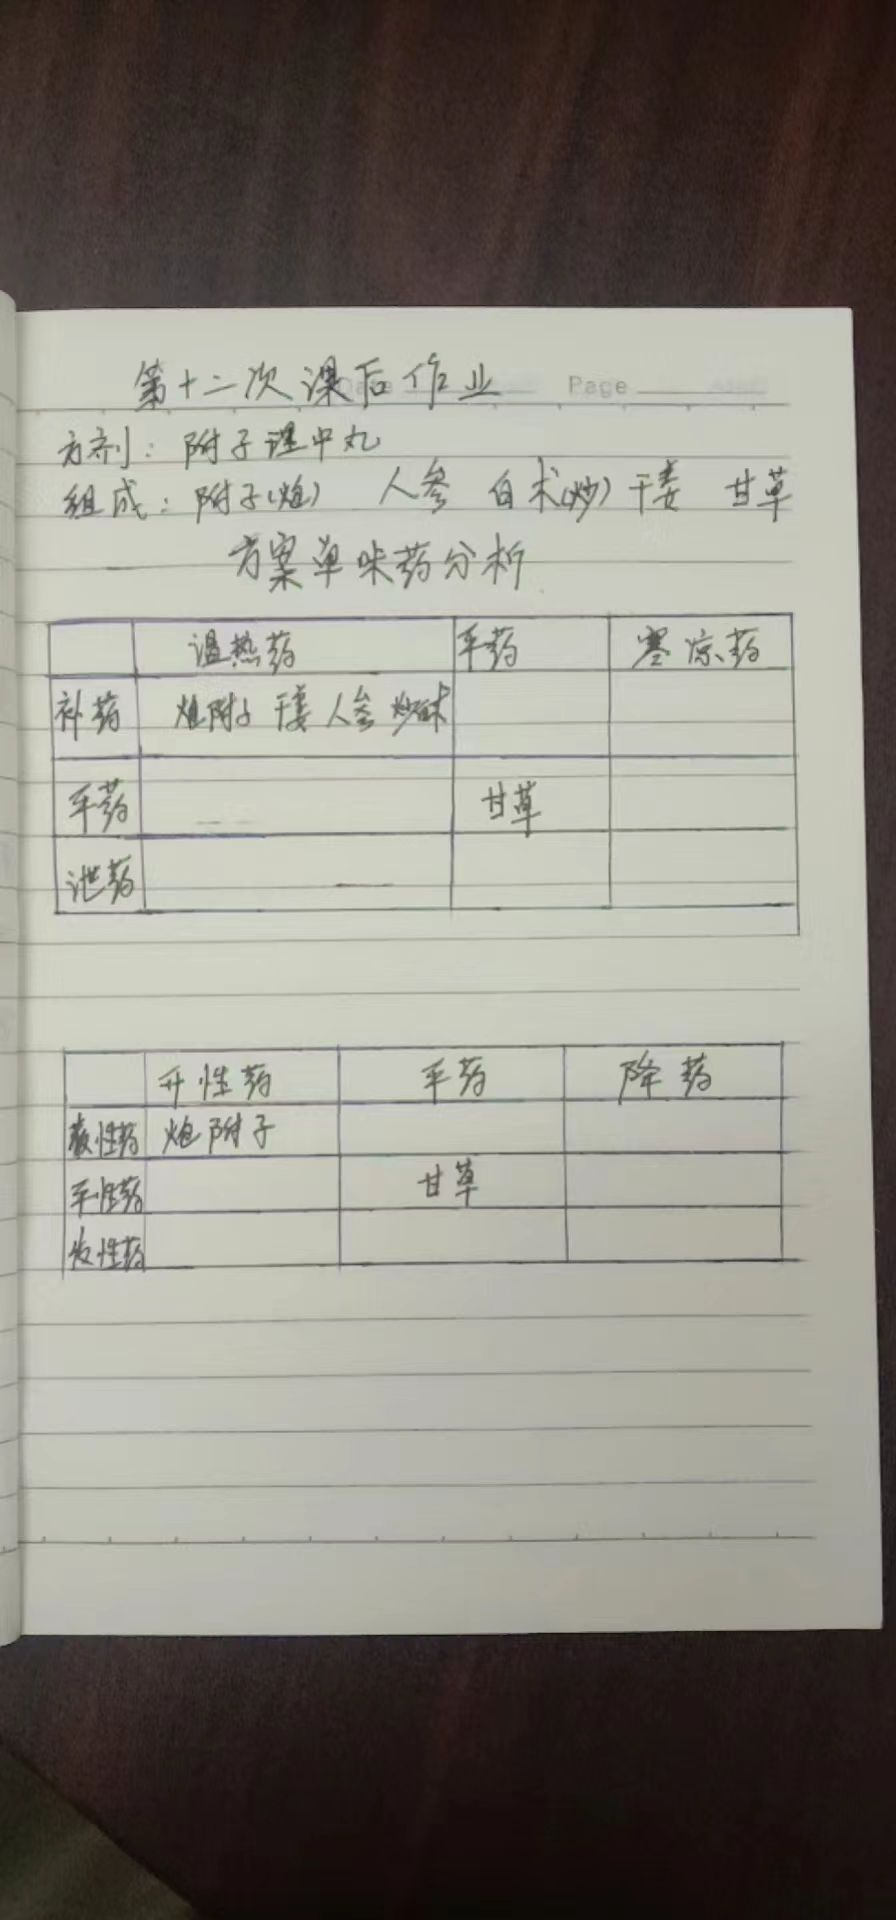 第十二次课后作业
Page
方剂：附子理中丸
组成：附子(炮) 人参 白术(炒) 干姜 甘草
方案单味药分析
温热药 平药 寒凉药
补药 炮附子 干姜 人参 炒白术
平药 甘草
泄药
升性药 平药 降药
散性药 炮附子
平性药 甘草
收性药